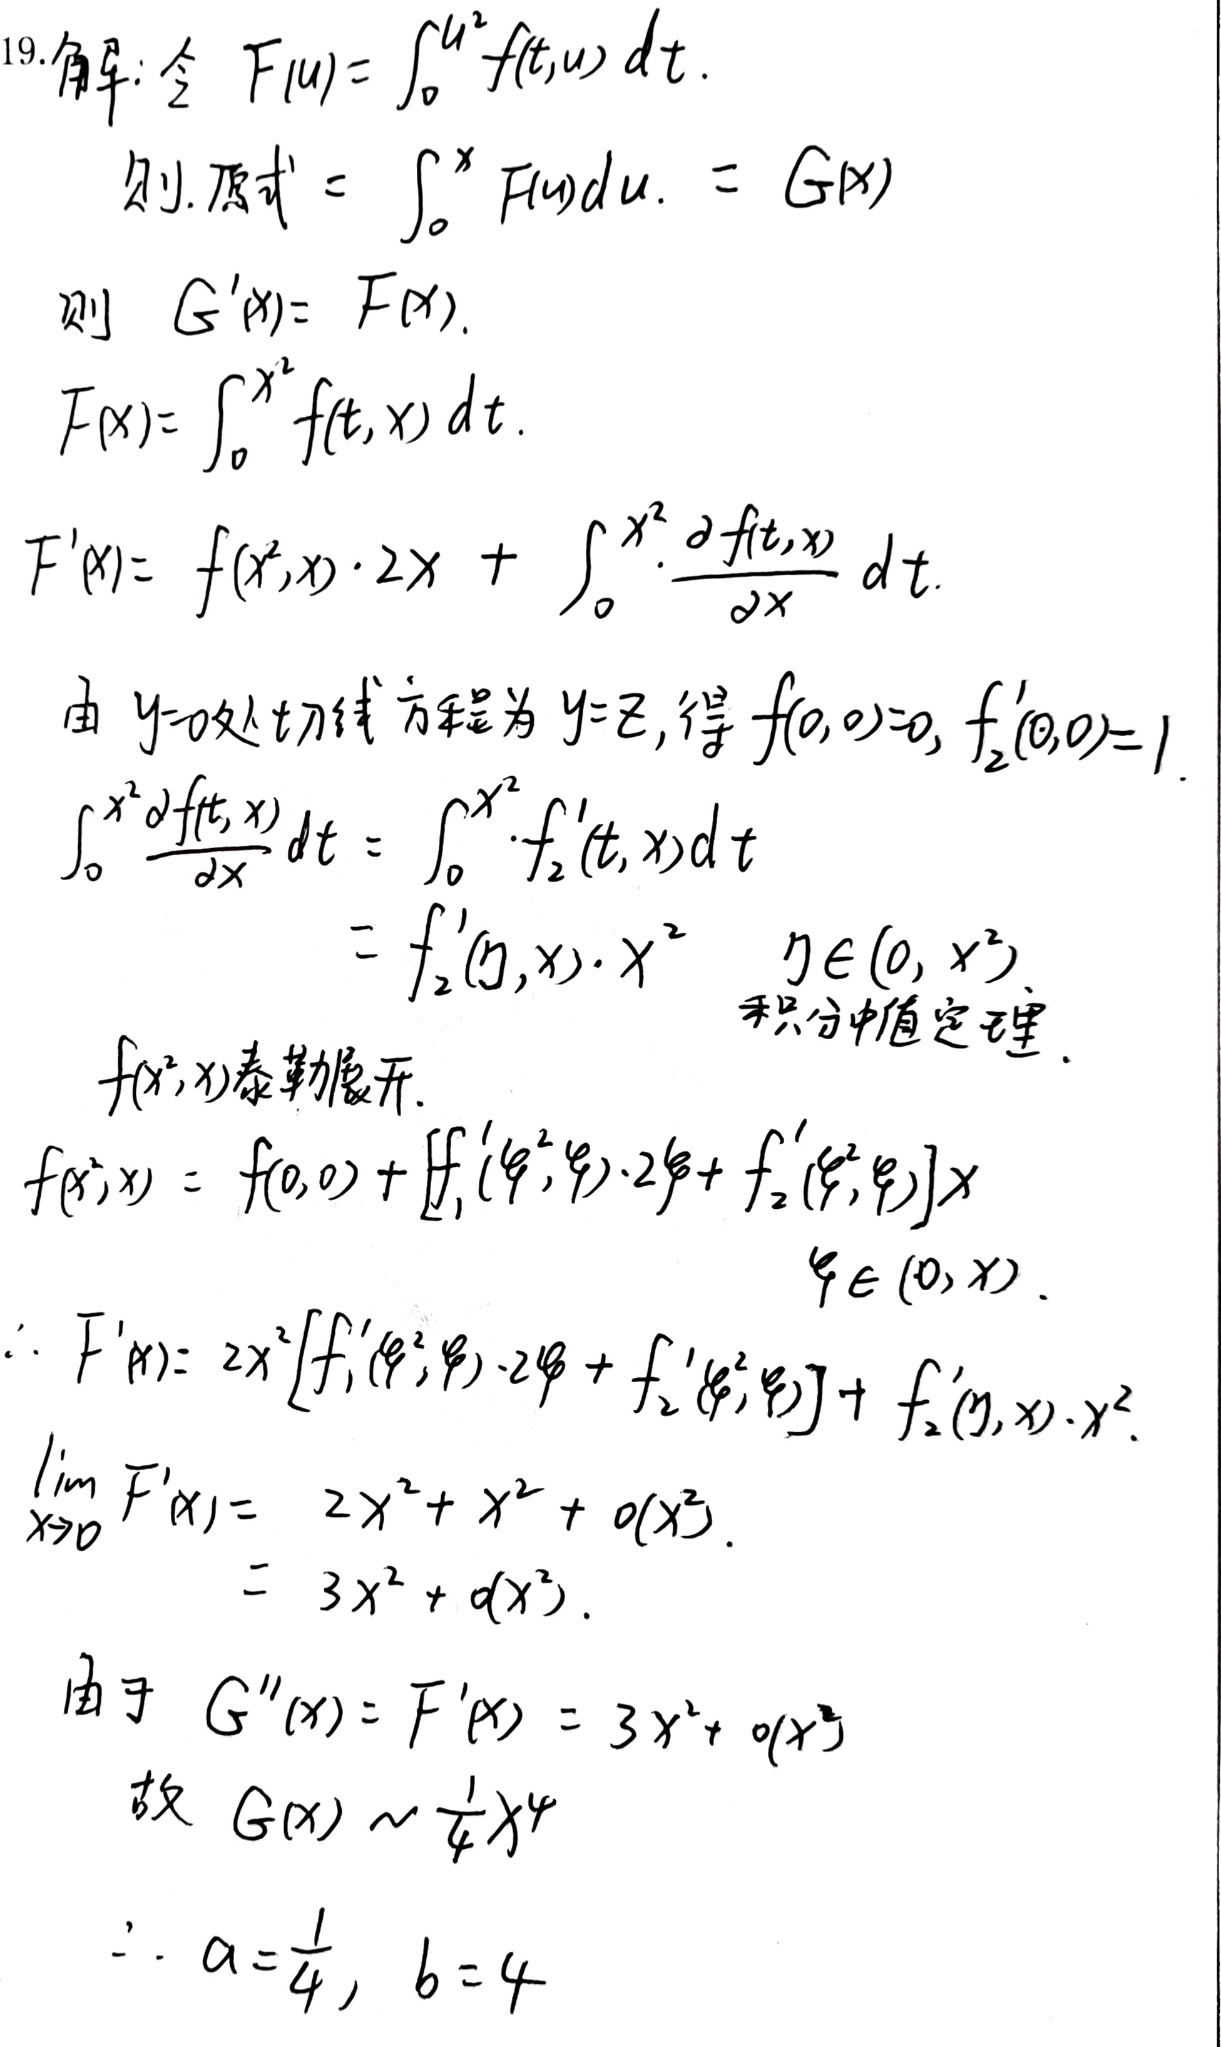 19. 解: 令 F(u) = ∫₀^{u²} f(t,u) dt.
则. 原式 = ∫₀^x F(u)du. = G(x)
则 G'(x) = F(x).
F(x) = ∫₀^{x²} f(t,x) dt.
F'(x) = f(x²,x)·2x + ∫₀^{x²}·∂f(t,x)/∂x dt.
由 y=0处切线方程为 y=z, 得 f(0,0)=0, f₂'(0,0)=1.
∫₀^{x²} ∂f(t,x)/∂x dt = ∫₀^{x²}·f₂'(t,x)dt
= f₂'(η,x)·x² η∈(0, x²).
积分中值定理.
f(x²,x)泰勒展开.
f(x²,x) = f(0,0) + [f₁'(φ²,φ)·2φ + f₂'(φ²,φ)]x
φ∈(0,x).
∴ F'(x) = 2x²[f₁'(φ²,φ)·2φ + f₂'(φ²,φ)] + f₂'(η,x)·x².
lim_{x→0} F'(x) = 2x² + x² + o(x²).
= 3x² + o(x²).
由于 G''(x) = F'(x) = 3x² + o(x²)
故 G(x) ~ 1/4 x⁴
∴ a = 1/4, b = 4